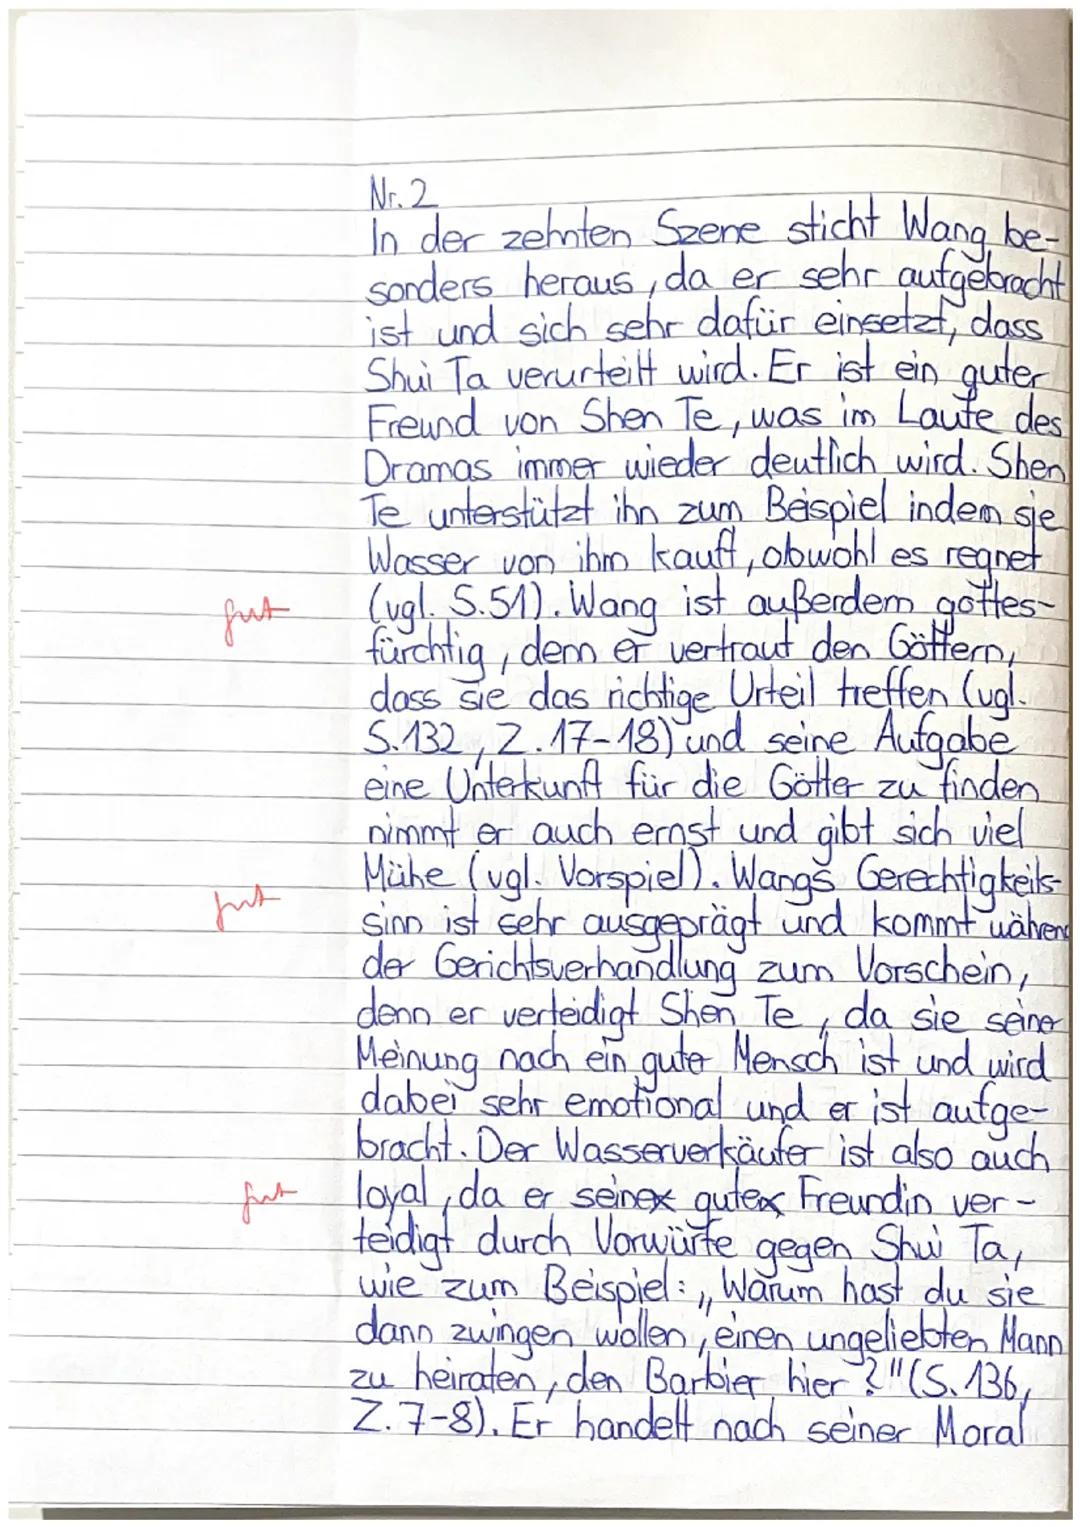 Nr. 2
In der zehnten Szene sticht Wang be-
sonders heraus, da er sehr aufgebracht
ist und sich sehr dafür einsetzt, dass
Shui Ta verurteilt wird. Er ist ein guter
Freund von Shen Te, was im Laufe des
Dramas immer wieder deutlich wird. Shen
Te unterstützt ihn zum Beispiel indem sie
Wasser von ihm kauft, obwohl es regnet
gut (vgl. S.51). Wang ist außerdem gottes-
fürchtig, denn er vertraut den Göttern,
dass sie das richtige Urteil treffen (vgl.
S.132, Z.17-18) und seine Aufgabe
eine Unterkunft für die Götter zu finden
nimmt er auch ernst und gibt sich viel
Mühe (vgl. Vorspiel). Wangs Gerechtigkeits-
gut sinn ist sehr ausgeprägt und kommt während
der Gerichtsverhandlung zum Vorschein,
denn er verteidigt Shen Te, da sie seiner
Meinung nach ein guter Mensch ist und wird
dabei sehr emotional und er ist aufge-
bracht. Der Wasserverkäufer ist also auch
gut loyal, da er seine gute Freundin ver-
teidigt durch Vorwürfe gegen Shui Ta,
wie zum Beispiel: „Warum hast du sie
dann zwingen wollen, einen ungeliebten Mann
zu heiraten, den Barbier hier?" (S. 136,
Z. 7-8). Er handelt nach seiner Moral